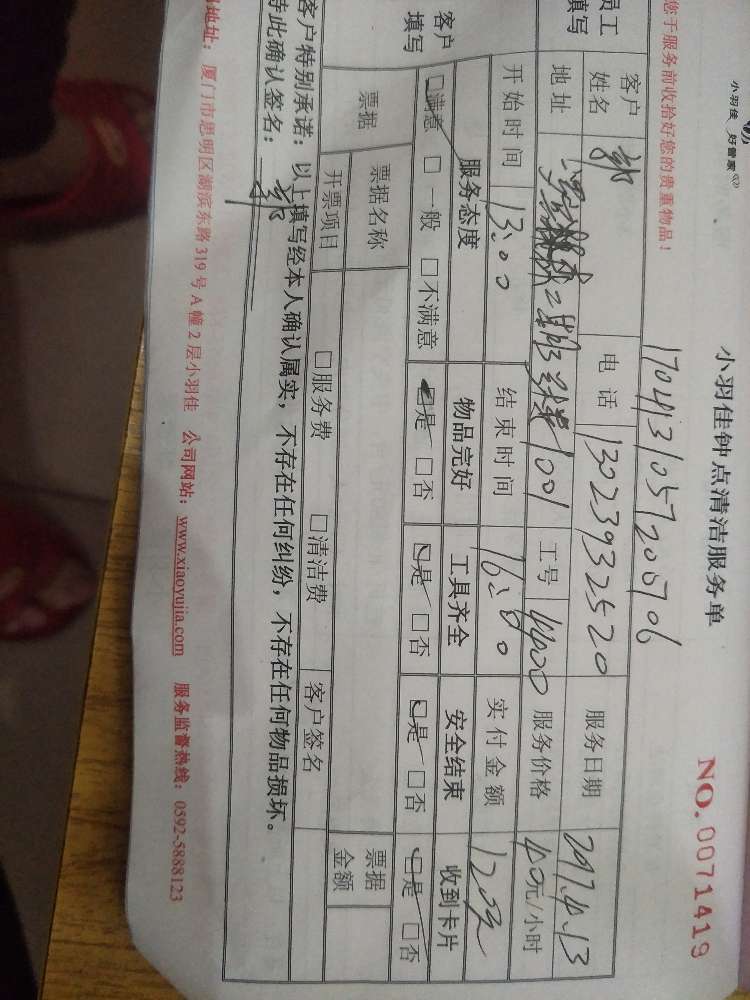 小羽佳 好管家
小羽佳钟点清洁服务单
NO.0071419
您于服务前收拾好您的贵重物品！
170413105720706
员工填写
客户姓名 郭 电话 13023932520 服务日期 2017.4.13
地址 二期 1001 工号 4400 服务价格 40元/小时
开始时间 13:00 结束时间 16:00 实付金额 120元
客户填写
服务态度 物品完好 工具齐全 安全结束 收到卡片
□满意 □一般 □不满意 □是 □否 □是 □否 □是 □否 □是 □否
票据 票据名称 票据金额
开票项目 □服务费 □清洁费 客户签名
客户特别承诺：以上填写经本人确认属实，不存在任何纠纷，不存在任何物品损坏。
特此确认签名：郭
地址：厦门市思明区湖滨东路319号A幢2层小羽佳 公司网站：www.xiaoyujia.com 服务监督热线：0592-5888123